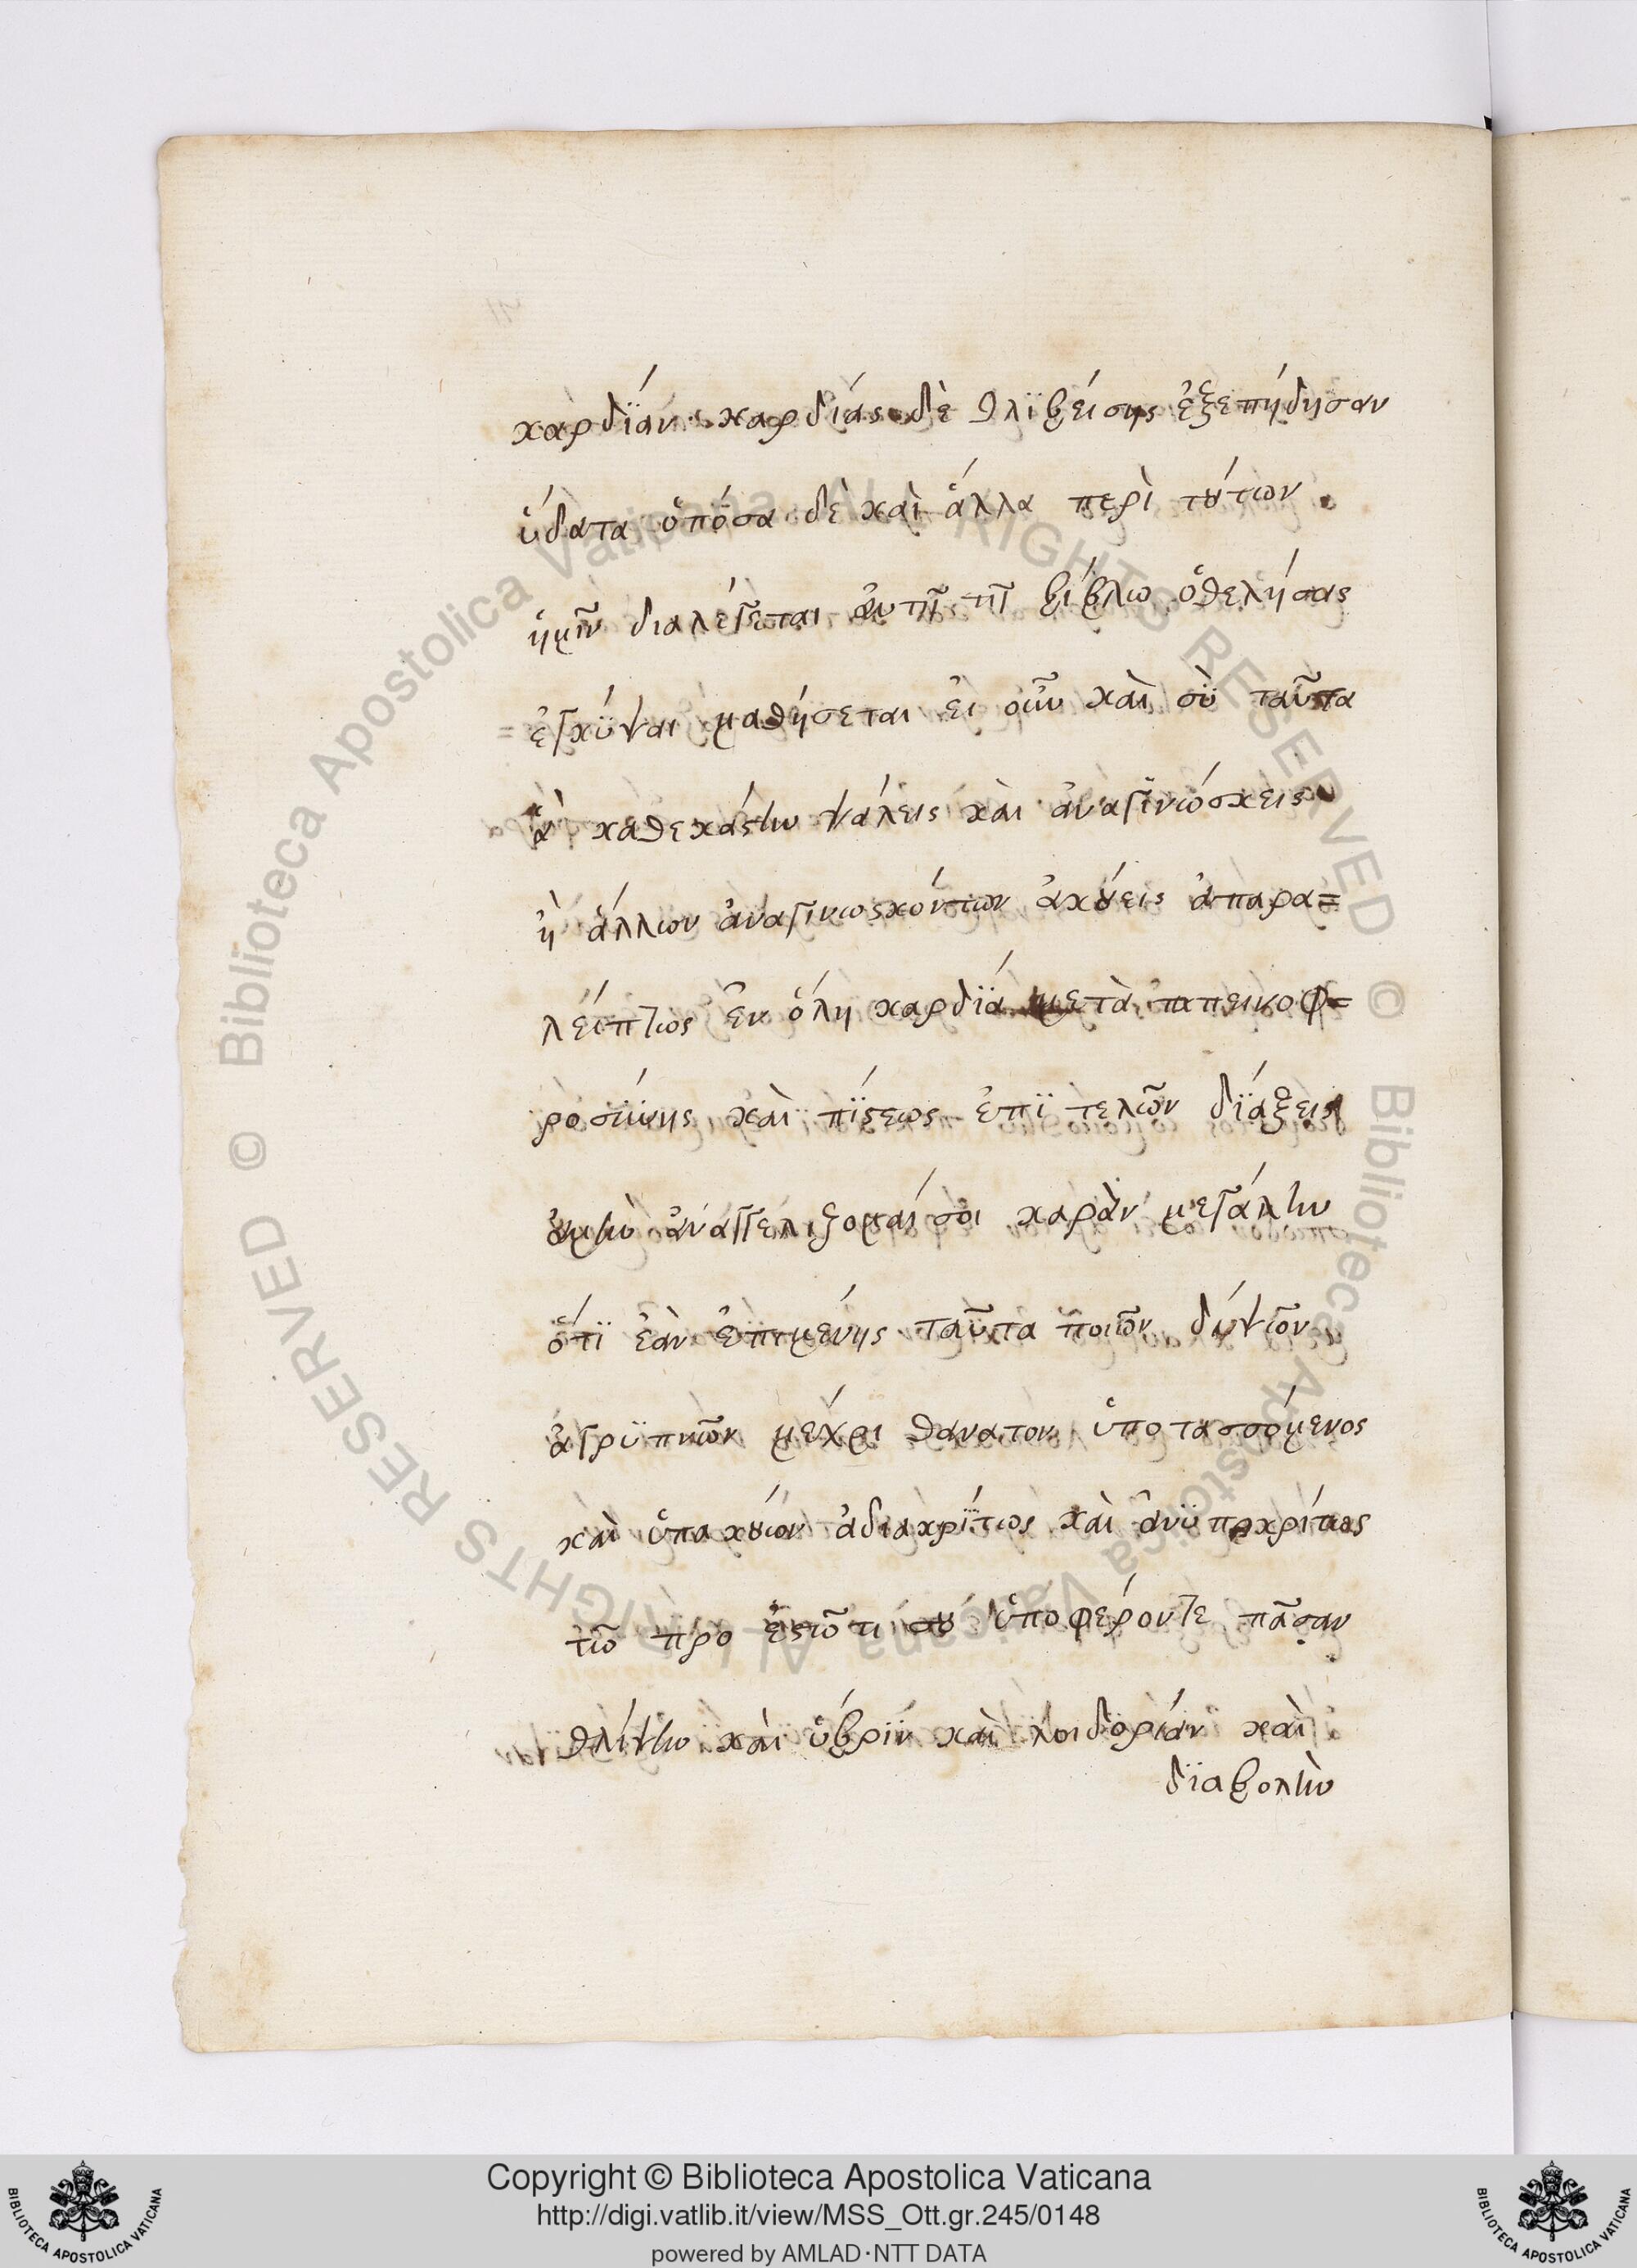 καρδΐαν· καρδίας δὲ θλϊβείσης ἐξεπήδησαν
ὕδατα ὁπόσα δὲ καὶ ἄλλα περὶ τούτων.
ἡμῖν διαλέγεται ἐν τῆ τῆ βίβλω ὁ θελήσας
ἐγκύψαι μαθήσεται εἰ οὖν καὶ σὺ ταῦτα
ἃ καθεκάστην ψάλεις καὶ ἀναγϊνώσκεις
ἢ ἄλλων ἀναγινωσκόντων ἀκούεις ἀπαρα=
λείπτως ἐν ὅλη καρδΐα μετὰ ταπεινοφ=
ροσύνης καὶ πΐστεως ἐπϊ τελῶν δϊάξεις
ἀναγγελιξομαί σοι χαρὰν μεγάλην
ὅτϊ ἐὰν ἐπιμένης ταῦτα ποιῶν διψῶν
ἀγρϋπνῶν μέχρι θανατον ὑποτασσόμενος
καὶ ὑπακούων ἀδιακρΐτως καὶ ἀνϋποκρίτως
τῶ προ ἐστῶτι σου ὑποφέροντε πᾶσαν
θλίψιν καὶ ὕβρϊν καὶ λοιδορίαν καὶ
δϊαβολὴν
Copyright © Biblioteca Apostolica Vaticana
http://digi.vatlib.it/view/MSS_Ott.gr.245/0148
powered by AMLAD·NTT DATA